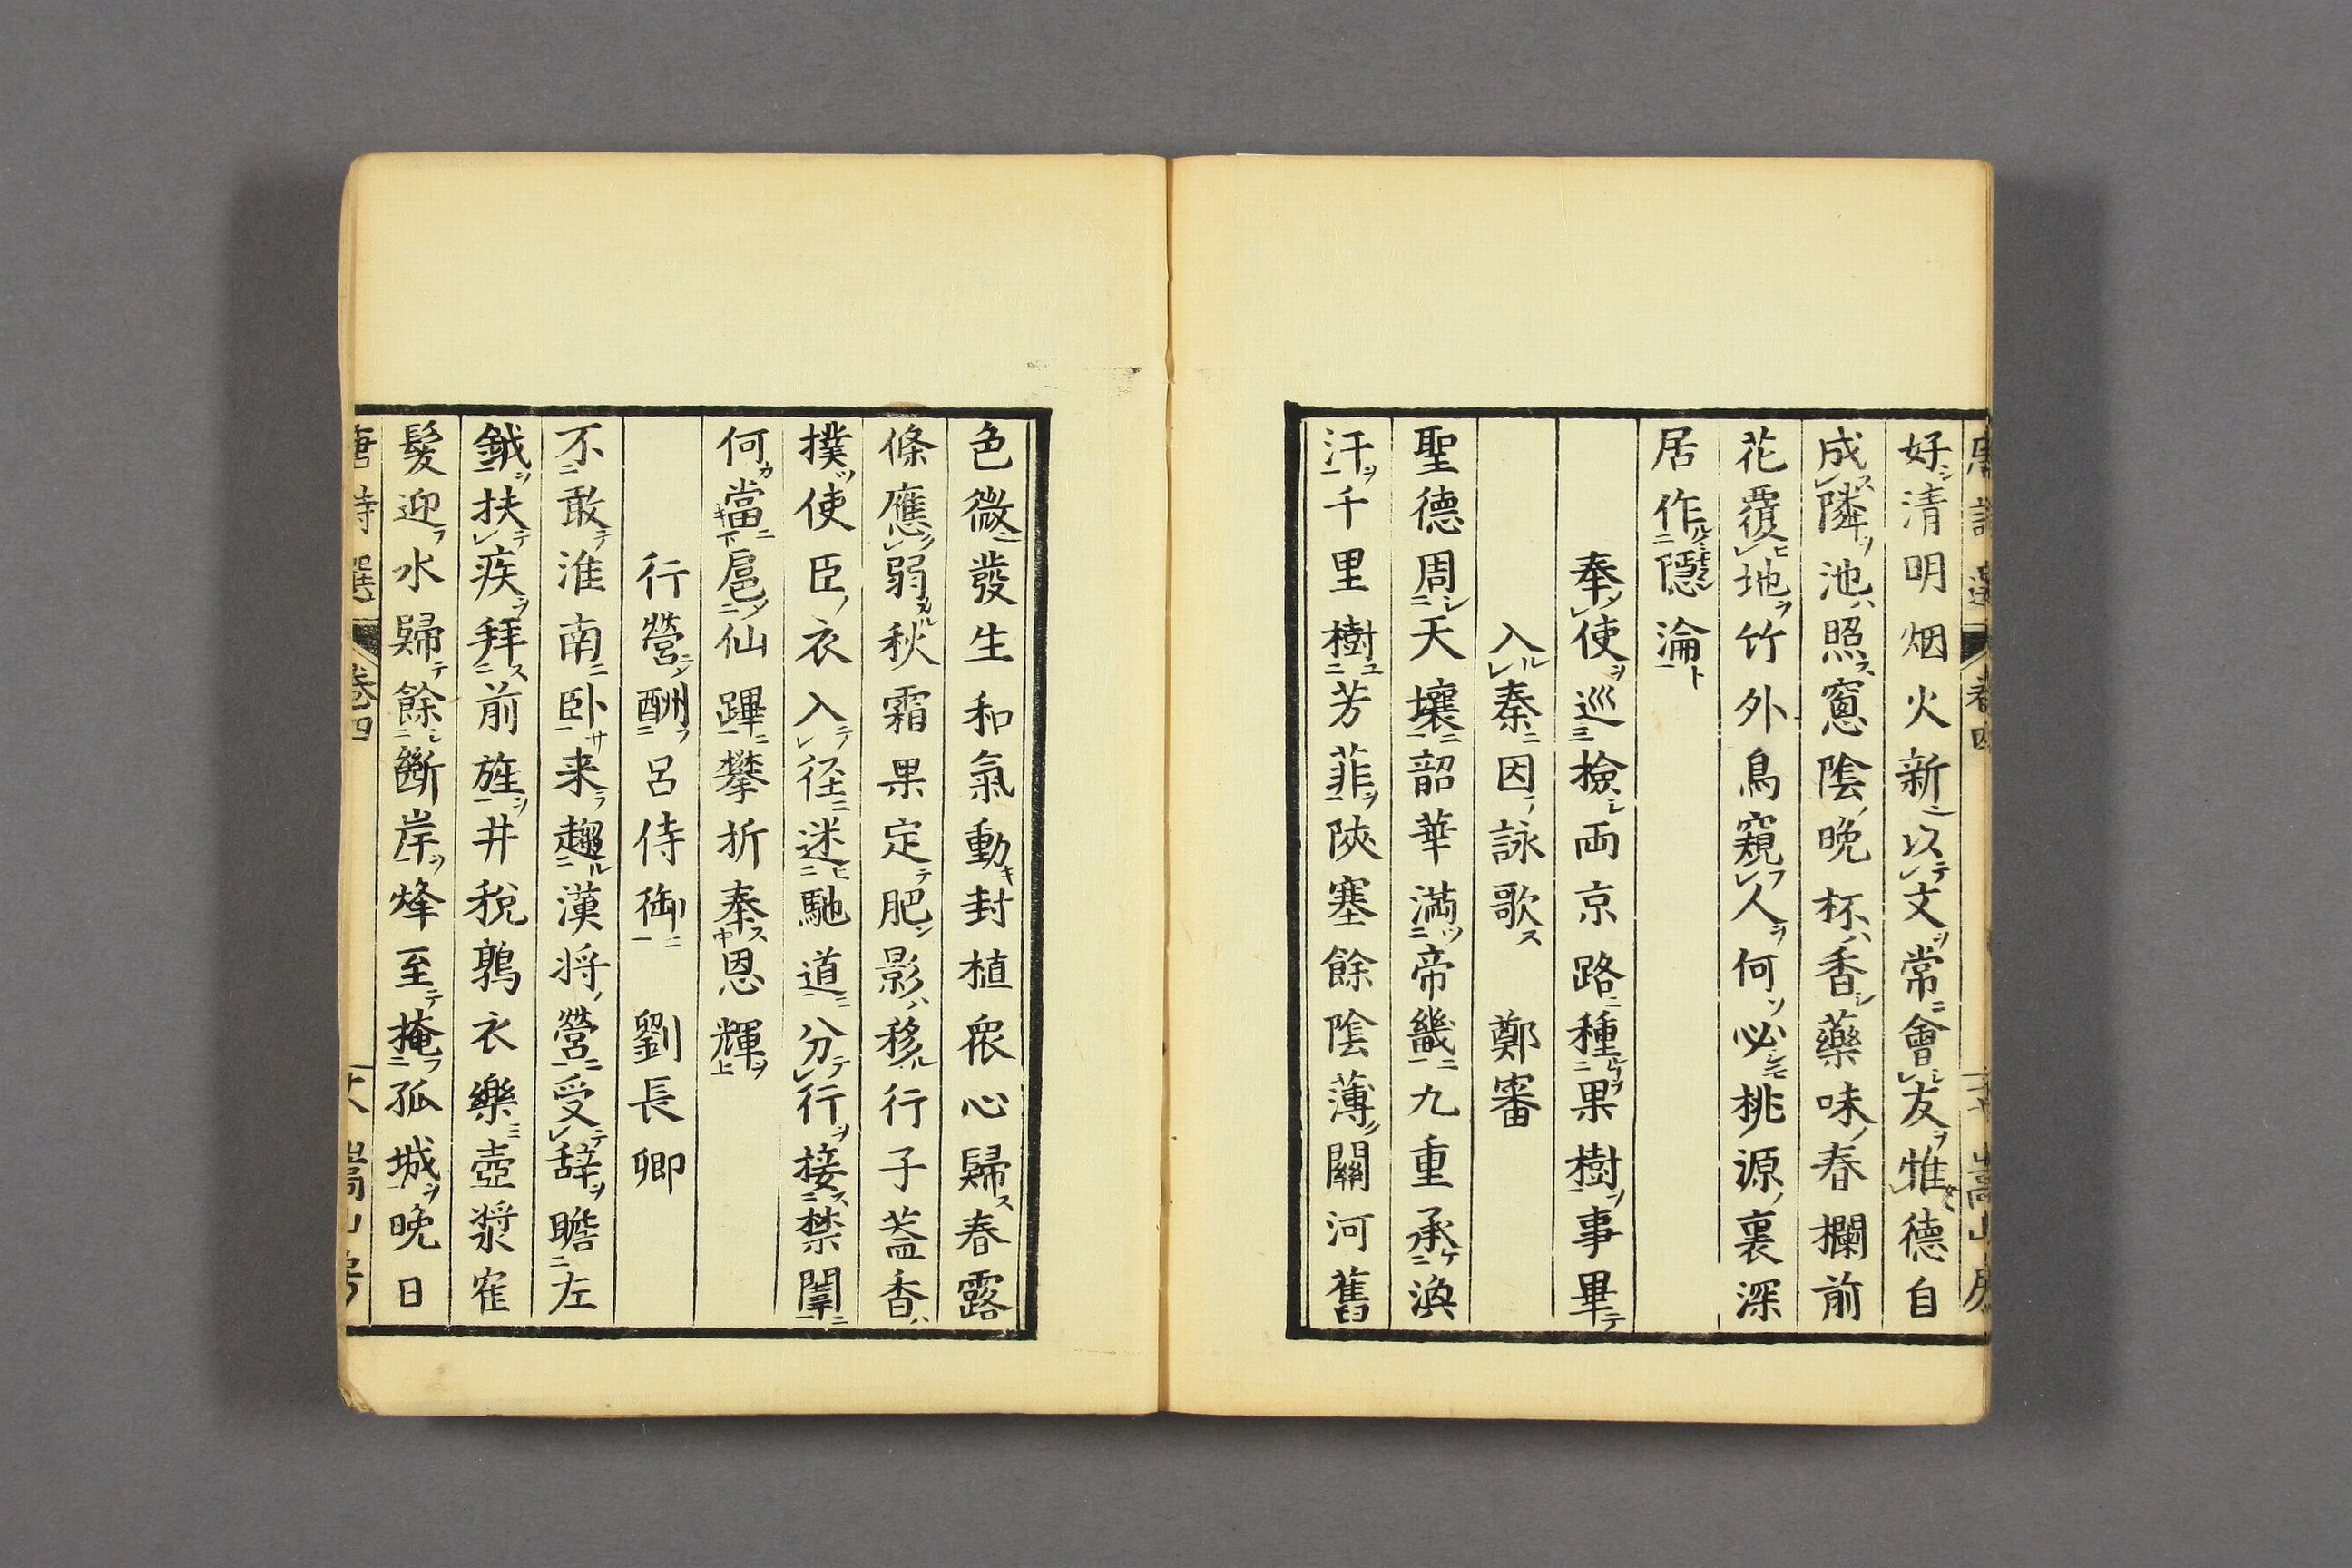 好清明烟火新以文常會友惟德自
成隣池照窓陰晩杯香藥味春欄前
花覆地竹外鳥窺人何必桃源裏深
居作隱淪
奉使巡撿両京路種果樹事畢
入秦因詠歌　鄭審
聖德周天壤韶華満帝畿九重承渙
汗千里樹芳菲陜塞餘陰薄關河舊
色微發生和氣動封植衆心歸春露
條應弱秋霜果定肥影移行子葢香
撲使臣衣入径迷馳道分行接禁闈
何當扈仙蹕攀折奉恩輝
行營酬呂侍御　劉長卿
不敢淮南卧来趨漢将營受辞瞻左
鉞扶疾拜前旌井税鶉衣樂壺漿寉
髪迎水歸餘斷岸烽至掩孤城晩日
唐詩選　卷四　嵩山房